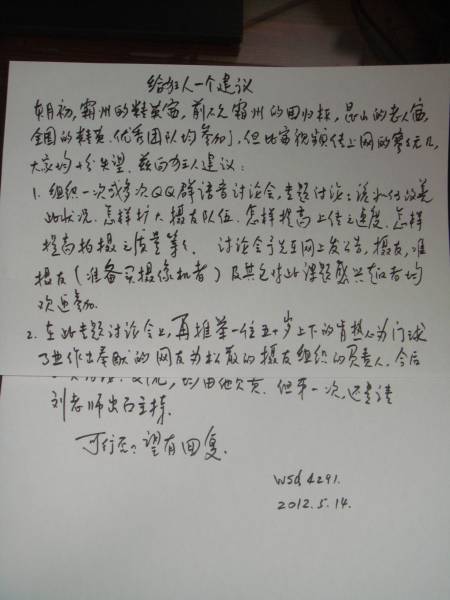 给狂人一个建议
月初,霸州的精英赛,前几天霸州的回归杯,昆山的老人赛,
全国的精英、优秀团队均参加,但比赛视频传上网的寥寥无几,
大家均十分失望。兹向狂人建议:
1. 组织一次或多次QQ群语音讨论会,专题讨论:该如何改善
此状况、怎样扩大摄友队伍、怎样提高上传之速度、怎样
提高拍摄之质量等等。 讨论会予先在网上发公告,摄友,准
摄友(准备买摄像机者)及其它对此课题感兴趣者均
欢迎参加.
2. 在此专题讨论会上,再推举一位五十岁上下的肯热心为门球
事业作出奉献的网友为松散的摄友组织的负责人。今后
交流,均由他负责。但第一次,还是请
刘老师出面主持.
可行否?望有回复.
wsd 4291.
2012.5.14.